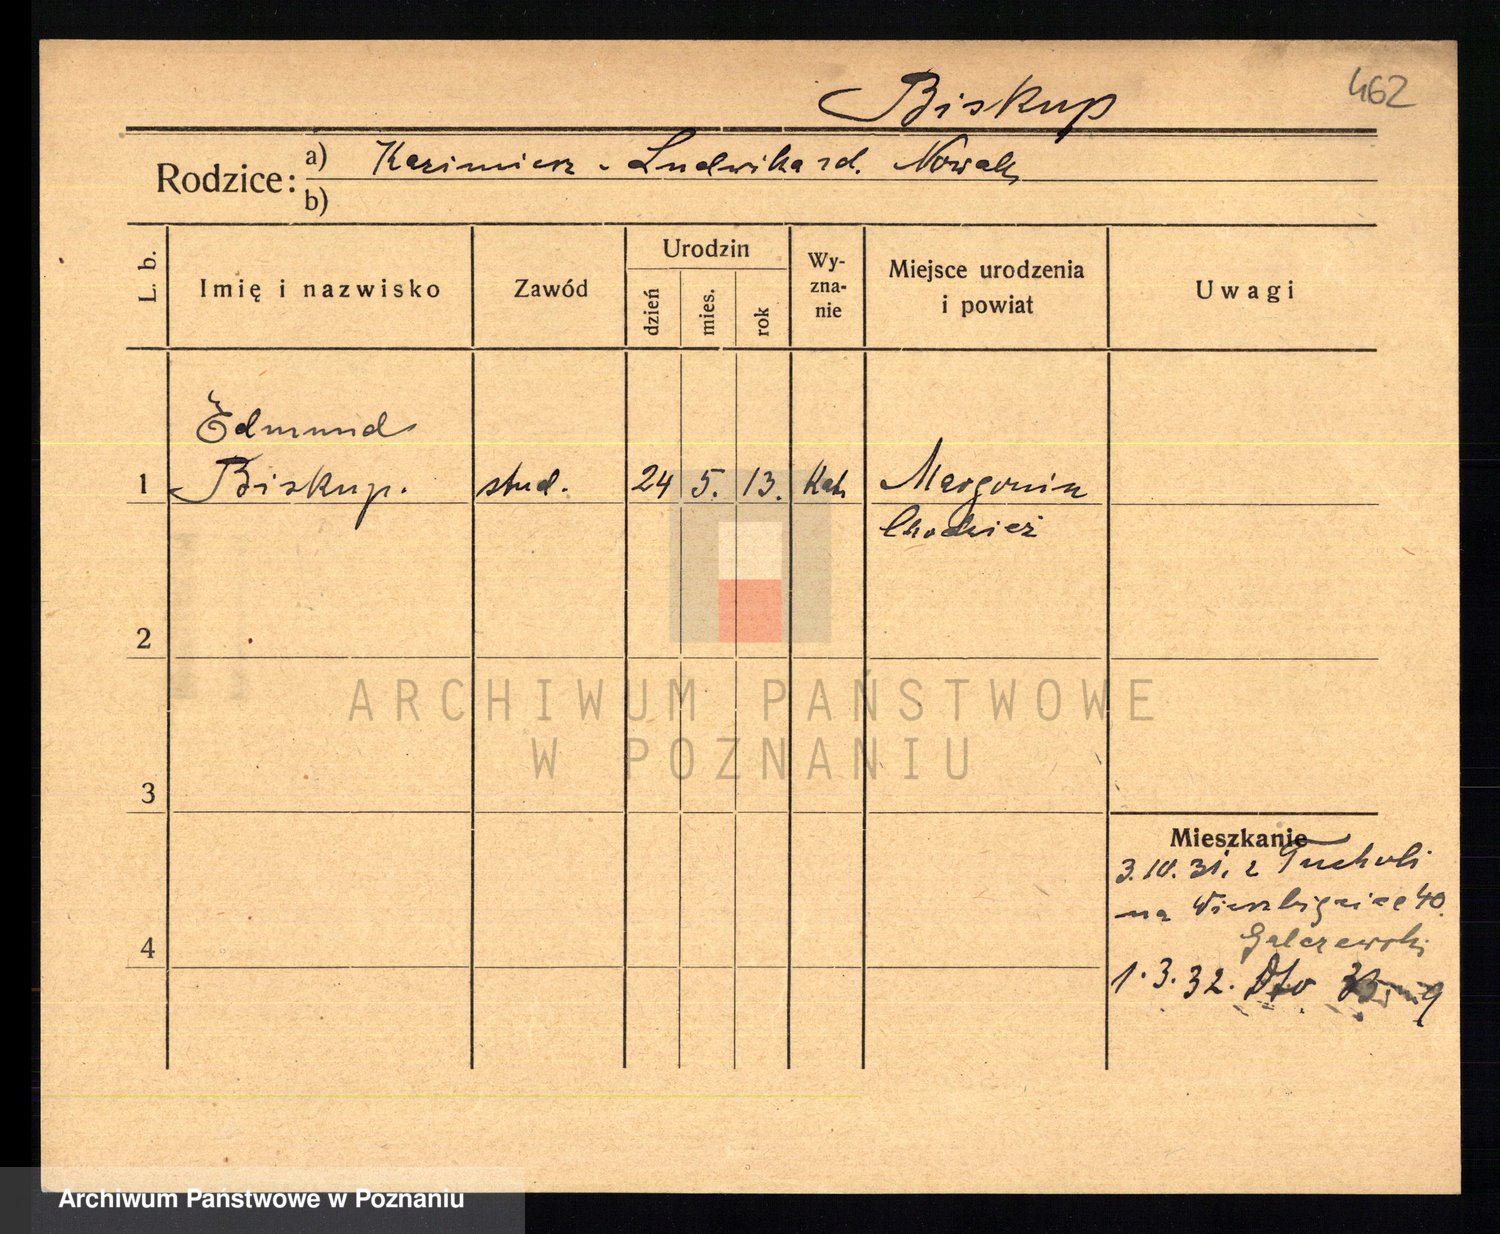 462
Biskup
Rodzice:
a) Kazimierz - Ludwika zd. Nowak
b)
L. b.
Imię i nazwisko
Zawód
Urodzin
dzień
mies.
rok
Wy-
zna-
nie
Miejsce urodzenia
i powiat
Uwagi
Edmund
1 Biskup. stud. 24 5. 13. Kat. Margonin
Chodzież
2
ARCHIWUM PAŃSTWOWE
W POZNANIU
3
Mieszkanie
3.10.31. z Tucholi
na Wierzbięcice 40.
4
1.3.32. Dto
Archiwum Państwowe w Poznaniu